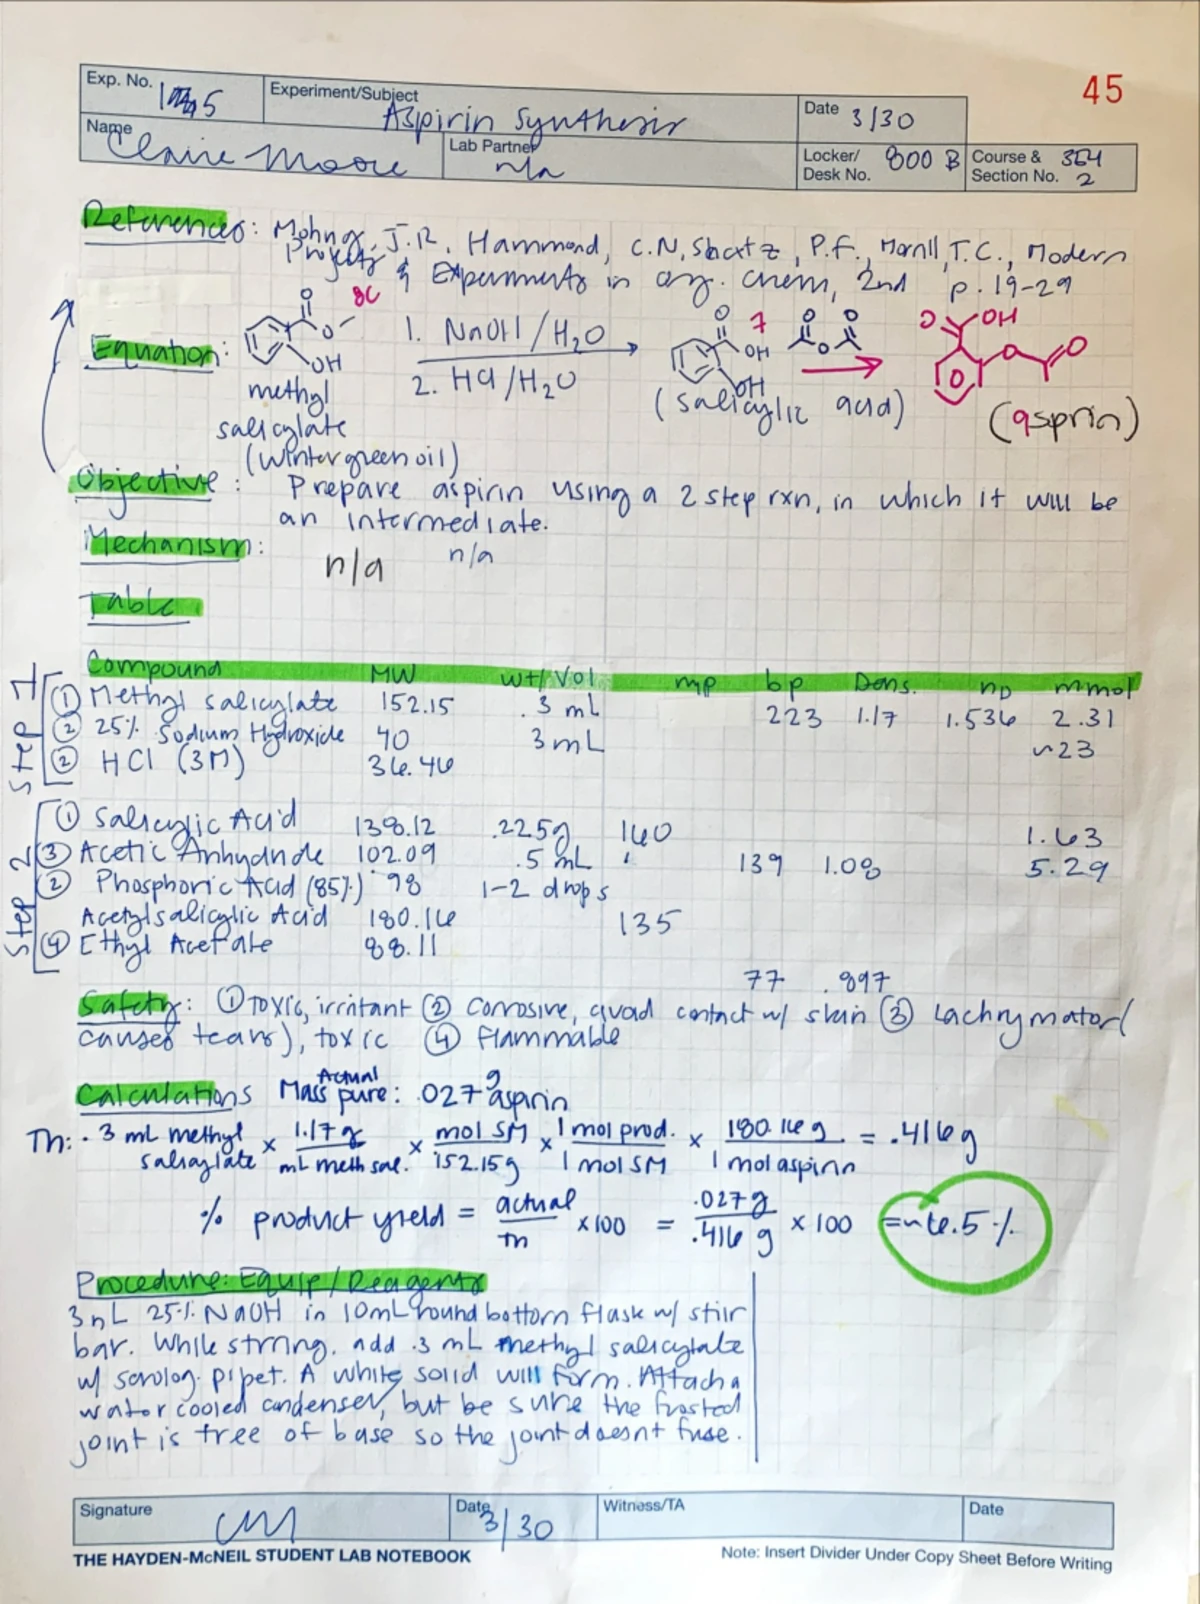 45
Exp. No. 5
Experiment/Subject Aspirin Synthesis
Date 3/30
Name Claire Moore
Lab Partner n/a
Locker/Desk No. 800 B
Course & Section No. 364 2
References: J.R, Hammond, C.N, P.F., T.C., Modern
Projects & Experiments in org. chem, 2nd p. 19-29
8C
7
Equation:
O
O
OH
1. NaOH/H2O
2. HCl/H2O
O
OH
OH
O O
O
O OH
O O
methyl
salicylate
(wintergreen oil)
(salicylic acid)
(asprin)
Objective: Prepare aspirin using a 2 step rxn, in which it will be
an intermediate.
Mechanism:
n/a n/a
Table
Compound MW wt/Vol mp bp Dens. nD mmol
STEP 1
① Methyl salicylate 152.15 .3 mL 223 1.17 1.536 2.31
② 25% Sodium Hydroxide 40 3 mL ~23
② HCl (3M) 36.46
Step 2
① Salicylic Acid 138.12 .225g 160 1.63
③ Acetic Anhydride 102.09 .5 mL 139 1.08 5.29
② Phosphoric Acid (85%) 98 1-2 drops
Acetylsalicylic Acid 180.16 135
④ Ethyl Acetate 88.11
77 .897
Safety: ① toxic, irritant ② corrosive, avoid contact w/ skin ③ Lachrymator(
causes tears), toxic ④ flammable
Calculations Mass Actual pure: .027 g aspirin
Th: .3 mL methyl salicylate x 1.17 g / mL meth sal. x mol SM / 152.15g x 1 mol prod. / 1 mol SM x 180.16 g / 1 mol aspirin = .416g
% product yield = actual / Th x100 = .027g / .416 g x 100 =~6.5%
Procedure: Equip/Reagents
3mL 25% NaOH in 10mL round bottom flask w/ stir
bar. While stirring, add .3 mL methyl salicylate
w/ serolog. pipet. A white solid will form. Attach a
water cooled condenser, but be sure the frosted
joint is free of base so the joint doesnt fuse.
Signature CM
Date 3/30
Witness/TA
Date
THE HAYDEN-McNEIL STUDENT LAB NOTEBOOK
Note: Insert Divider Under Copy Sheet Before Writing